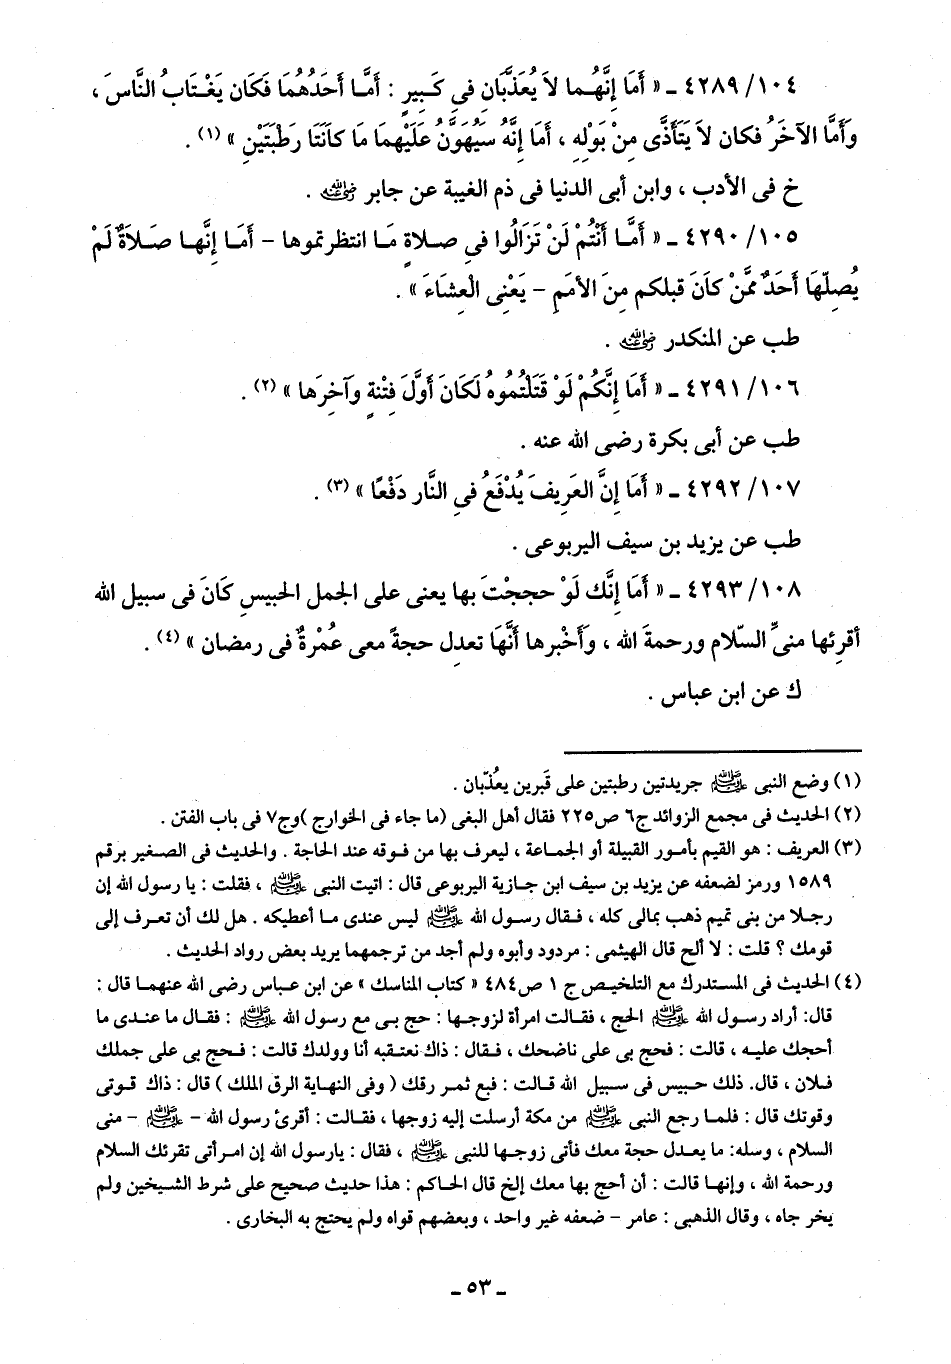 ٤٢٨٩/١٠٤ ـ « أَمَا إِنَّهُما لاَ يُعَذَّبَانِ فِي كَبِيرٍ : أَمَّا أَحَدُهُمَا فَكَان يَغْتَابُ النَّاسَ ،
وَأَمَّا الآخَرُ فكان لاَ يَتَأَذَّى مِنْ بَوْلِهِ ، أَمَا إِنَّهُ سَيُهَوَّنُ عَلَيْهِمَا مَا كَانَتَا رَطْبَتَيْنِ » (١) .
خ فى الأدب ، وابن أبى الدنيا فى ذم الغيبة عن جابر رضي الله عنه .
٤٢٩٠/١٠٥ ـ « أَمَّا أَنْتُمْ لَنْ تَزَالُوا فِي صلاةٍ مَا انتظرتموها – أَمَا إِنَّها صَلاَةٌ لَمْ
يُصلِّهَا أَحَدٌ مِمَّنْ كَانَ قبلكم مِنَ الأمَمِ – يَعْنِى الْعِشَاءَ » .
طب عن المنكدر رضي الله عنه .
٤٢٩١/١٠٦ ـ « أَمَا إِنَّكُمْ لَوْ قَتَلْتُمُوهُ لَكَانَ أَوَّلَ فِتْنةٍ وَآخِرَها » (٢) .
طب عن أبى بكرة رضى الله عنه .
٤٢٩٢/١٠٧ ـ « أَمَا إِنَّ العَرِيفَ يُدْفَعُ فِي النَّار دَفْعًا » (٣) .
طب عن يزيد بن سيف اليربوعى .
٤٢٩٣/١٠٨ ـ « أَمَا إِنَّك لَوْ حججْتَ بها يعنى على الجمل الحبيسِ كَانَ فى سبيل الله
أقرِئها منىِّ السّلام ورحمةَ الله ، وَأَخْبِرها أَنَّهَا تعدِل حجةً معى عُمْرةٌ فى رمضان » (٤) .
ك عن ابن عباس .
(١) وضع النبى ﷺ جريدتين رطبتين على قَبرين يعُذّبان .
(٢) الحديث فى مجمع الزوائد ج٦ ص٢٢٥ فقال أهل البغى (ما جاء فى الخوارج )وج٧ فى باب الفتن .
(٣) العريف : هو القيم بأمور القبيلة أو الجماعة ، ليعرف بها من فوقه عند الحاجة . والحديث فى الصغير برقم
١٥٨٩ ورمز لضعفه عن يزيد بن سيف ابن جازية اليربوعى قال : اتيت النبى ﷺ ، فقلت : يا رسول الله إن
رجلا من بنى تميم ذهب بمالى كله ، فقال رسول الله ﷺ ليس عندى ما أعطيكه . هل لك أن تعرف إلى
قومك ؟ قلت : لا ألخ قال الهيثمى : مردود وأبوه ولم أجد من ترجمهما يريد بعض رواد الحديث .
(٤) الحديث فى المستدرك مع التلخيص ج ١ ص٤٨٤ « كتاب المناسك » عن ابن عباس رضى الله عنهما قال :
قال: أراد رسول الله ﷺ الحج ، فقالت امرأة لزوجها : حج بى مع رسول الله ﷺ : فقال ما عندى ما
أحجك عليه ، قالت : فحج بى على ناضحك ، فقال : ذاك نعتقبه أنا وولدك قالت : فحج بى على جملك
فلان ، قال. ذلك حبيس فى سبيل الله قالت : فبع ثمر رقك ( وفى النهاية الرق الملك ) قال : ذاك قوتى
وقوتك قال : فلما رجع النبى ﷺ من مكة أرسلت إليه زوجها ، فقالت : أقرئ رسول الله – ﷺ – منى
السلام ، وسله: ما يعدل حجة معك فأتى زوجها للنبى ﷺ ، فقال : يارسول الله إن امرأتى تقرئك السلام
ورحمة الله ، وإنها قالت : أن أحج بها معك إلخ قال الحاكم : هذا حديث صحيح على شرط الشيخين ولم
يخر جاه ، وقال الذهبى : عامر – ضعفه غير واحد ، وبعضهم قواه ولم يحتج به البخارى .
ـ ٥٣ ـ